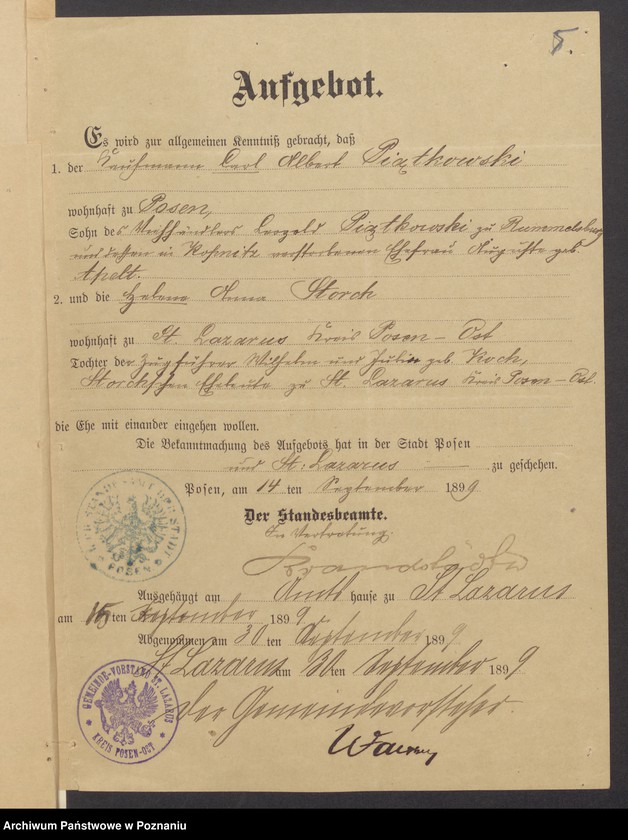 5.
Aufgebot.
Es wird zur allgemeinen Kenntniß gebracht, daß
1. der Kaufmann Carl Albert Piątkowski
wohnhaft zu Posen,
Sohn des Viehhändlers Leopold Piątkowski zu Rummelsburg
und dessen in Koßnitz verstorbenen Ehefrau Auguste geb.
Apelt.
2. und die Helene Anna Storch
wohnhaft zu St. Lazarus Kreis Posen - Ost
Tochter der Zugführer Wilhelm und Julie geb. Koch,
Storch'schen Eheleute zu St. Lazarus Kreis Posen - Ost.
die Ehe mit einander eingehen wollen.
Die Bekanntmachung des Aufgebots hat in der Stadt Posen
und St. Lazarus zu geschehen.
Posen, am 14 ten September 1899
Der Standesbeamte.
In Vertretung.
Ausgehängt am Amts hause zu St Lazarus
am 15 ten September 1899
Abgenommen am 30 ten September 1899
St Lazarus am 30 ten September 1899
der Gemeindevorsteher.
STANDESAMT DER STADT POSEN
GEMEINDE-VORSTAND ST. LAZARUS
KREIS POSEN-OST
Archiwum Państwowe w Poznaniu